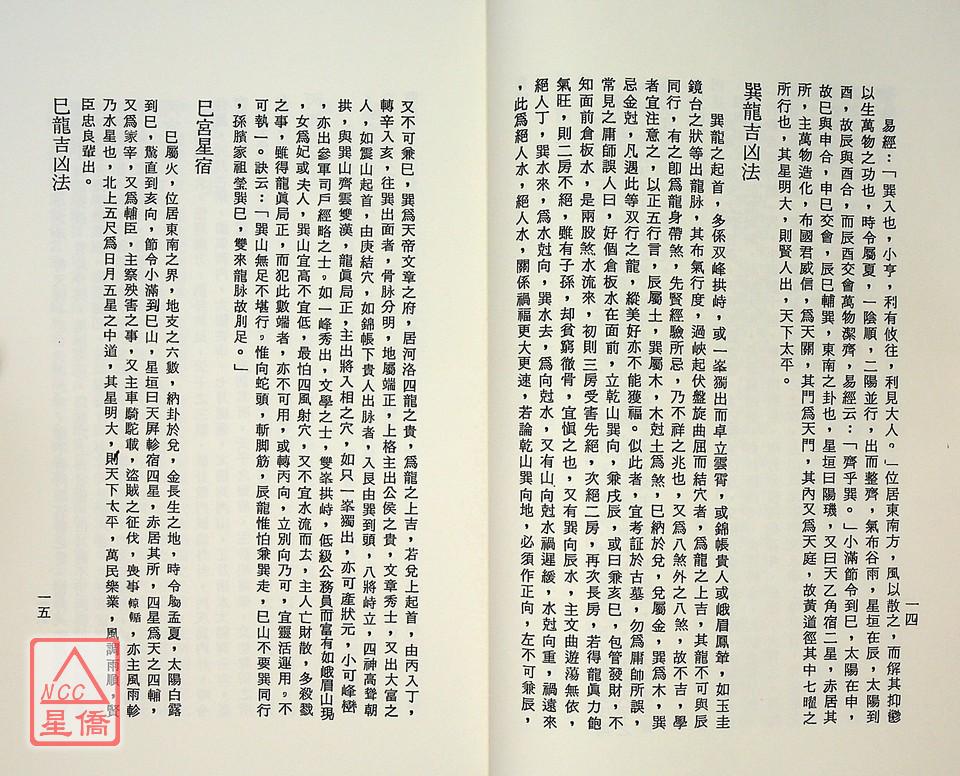 易經：「巽入也，小亨，利有攸往，利見大人。」位居東南方，風以散之，而解其抑鬱
以生萬物之功也，時令屬夏，一陰順，二陽並行，出而整齊，氣布谷雨，星垣在辰，太陽到
酉，故辰與酉合，而辰酉交會萬物潔齊，易經云：「齊乎巽。」小滿節令到巳，太陽在申，
故巳與申合，申巳交會，辰巳輔巽，東南之卦也，星垣曰陽璣，又曰天乙角宿二星，赤居其
所，主萬物造化，布國君威信，為天關，其門為天門，其內又為天庭，故黃道徑其中七曜之
所行也，其星明大，則賢人出，天下太平。
巽龍吉凶法
巽龍之起首，多係双峰拱峙，或一峯獨出而卓立雲霄，或錦帳貴人或峨眉鳳輦，如玉圭
鏡台之狀等出龍脉，其布氣行度，過峽起伏盤旋曲屈而結穴者，為龍之上吉，其龍不可與辰
同行，有之卽為龍身帶煞，先賢經驗所忌，乃不祥之兆也，又為八煞外之八煞，故不吉，學
者宜注意之，以正五行言，辰屬土，巽屬木，木尅土為煞，巳納於兌，兌屬金，巽為木，巽
忌金尅，凡遇此等双行之龍，縱美好亦不能獲福。似此者，宜考証於古墓，勿為庸師所誤，
常見之庸師誤人曰，好個倉板水在面前，立乾山巽向，兼戌辰，或曰兼亥巳，包管發財，不
知面前倉板水，是兩股煞水流來，初則三房受害先絕，次絕二房，再次長房，若得龍眞力飽
氣旺，則二房不絕，雖有子孫，却貧窮徹骨，宜愼之也，又有巽向辰水，主文曲遊蕩無依，
絕人丁，巽水來，為水尅向，巽水去，為向尅水，又有山向尅水禍遲緩，水尅向重，禍遠來
，此為絕人水，絕人水，關係禍福更大更速，若論乾山巽向地，必須作正向，左不可兼辰，
一四
又不可兼巳，巽為天帝文章之府，居河洛四龍之貴，為龍之上吉，若兌上起首，由丙入丁，
轉辛入亥，往巽出面者，骨脉分明，地屬端正，上格主出公侯之貴，文章秀士，又出大富之
人，如震山起首，由庚結穴，如錦帳下貴人出脉者，入艮由巽到頭，八將峙立，四神高聳朝
拱，與巽山齊雲雙漢，龍眞局正，主出將入相之穴，如只一峯獨出，亦可產狀元，小可峰巒
，亦出參軍司戶經略之士。如一峰秀出，文學之士，雙峯拱峙，低級公務員而富有如峨眉山現
，女為妃或夫人，巽山宜高不宜低，最怕四風射穴，又不宜水流而去，主人亡財散，多殺戮
之事，雖得龍眞局正，而犯此數端者，亦不可用，或轉丙向，立別向乃可，宜靈活運用。不
可執一。訣云：「巽山無足不堪行。惟向蛇頭，斬脚筋，辰龍惟怕兼巽走，巳山不要巽同行
，孫臏家祖塋巽巳，雙來龍脉故刖足。」
巳宮星宿
巳屬火，位居東南之界，地支之六數，納卦於兌，金長生之地，時令屬孟夏，太陽白露
到巳，驚直到亥向，節令小滿到巳山，星垣曰天屏軫宿四星，赤居其所，四星為天之四輔，
又為冢宰，又為輔臣，主察殃害之事，又主車騎駝載，盜賊之征伐，喪事輬輴，亦主風軫
乃水星也，北上五尺為日月五星之中道，其星明大，則天下太平，萬民樂業，風調雨順，賢
臣忠良輩出。
巳龍吉凶法
一五
NCC
星僑